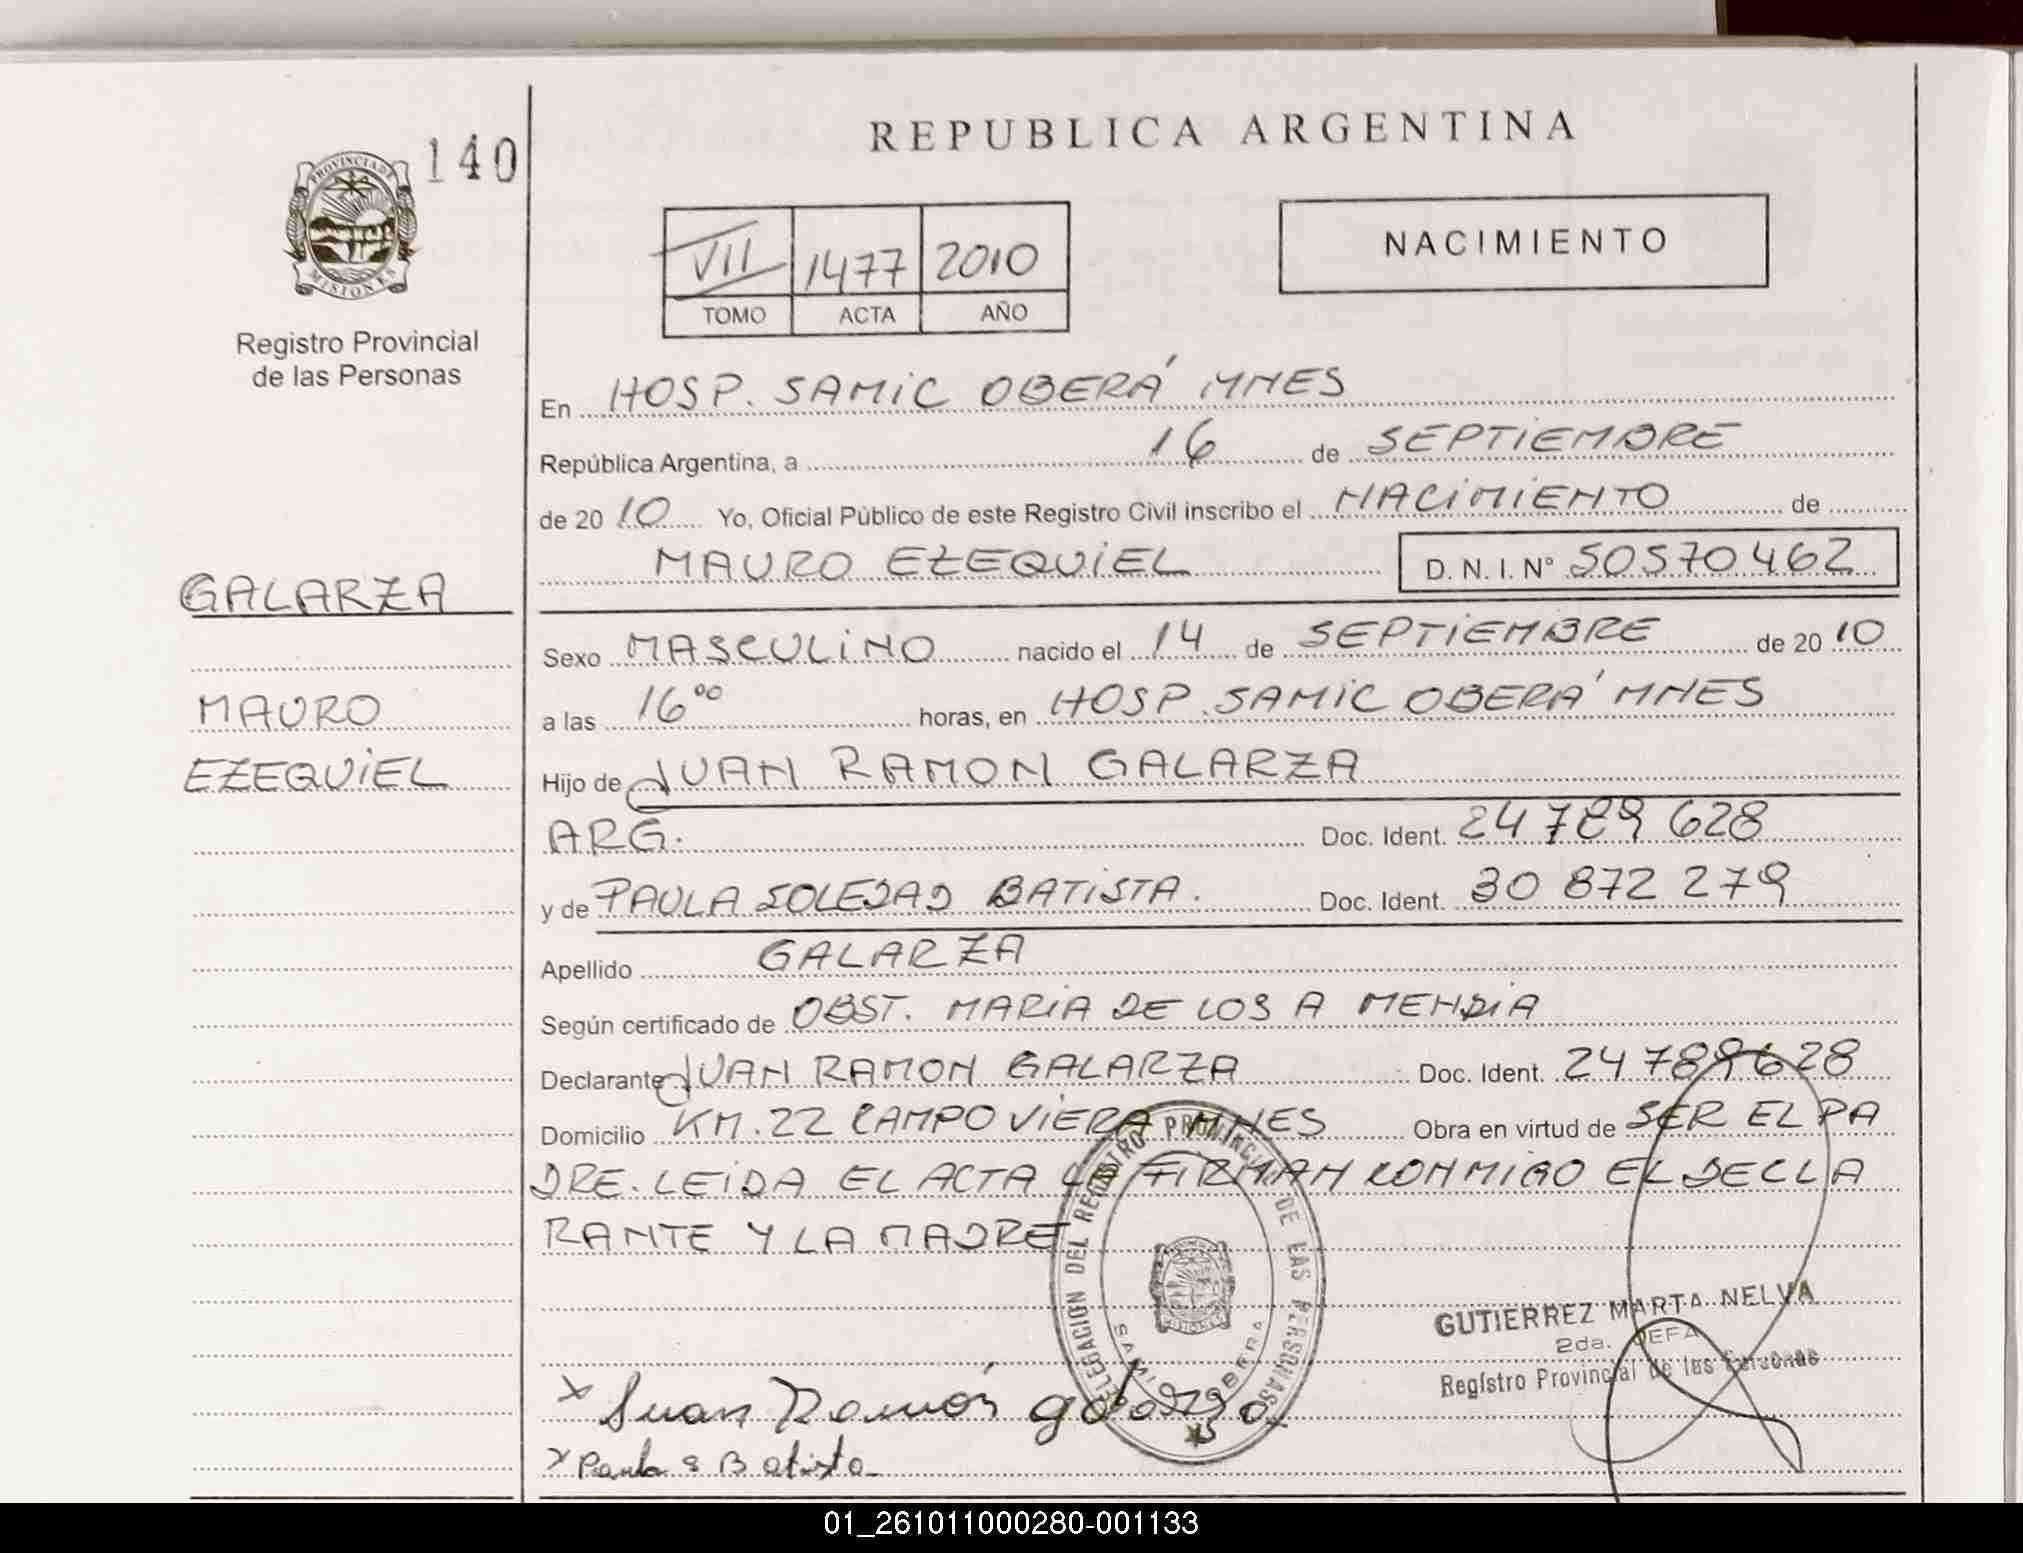 REPUBLICA ARGENTINA
140
PROVINCIA DE
MISIONES
Registro Provincial
de las Personas
VII 1477 2010
TOMO ACTA AÑO
NACIMIENTO
En HOSP. SAMIC OBERÁ MNES
República Argentina, a 16 de SEPTIEMBRE
de 2010 Yo, Oficial Público de este Registro Civil inscribo el NACIMIENTO de
MAURO EZEQUIEL D. N. I. N° 50570462
GALARZA
MAURO
EZEQUIEL
Sexo MASCULINO nacido el 14 de SEPTIEMBRE de 2010
a las 16⁰⁰ horas, en HOSP. SAMIC OBERÁ MNES
Hijo de JUAN RAMON GALARZA
ARG. Doc. Ident. 24 789 628
y de PAULA SOLEDAD BATISTA. Doc. Ident. 30 872 279
Apellido GALARZA
Según certificado de OBST. MARIA DE LOS A MENDIA
Declarante JUAN RAMON GALARZA Doc. Ident. 24 789628
Domicilio KM. 22 CAMPO VIERA MNES Obra en virtud de SER EL PA
DRE. LEIDA EL ACTA LA FIRMAN CONMIGO EL DECLA
RANTE Y LA MADRE
DELEGACION DEL REGISTRO PROVINCIAL DE LAS PERSONAS
MISIONES
SAMIC OBERA
GUTIERREZ MARTA NELVA
2da. JEFA
Registro Provincial de las Personas
x Juan Ramón galarza
x Paula S Batista
01_261011000280-001133